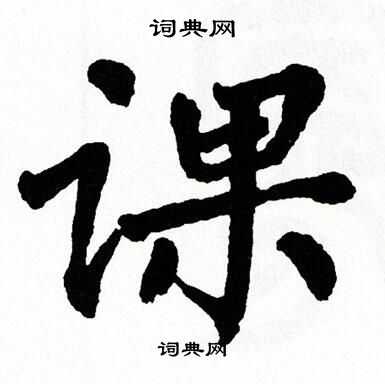 词典网
课
词典网